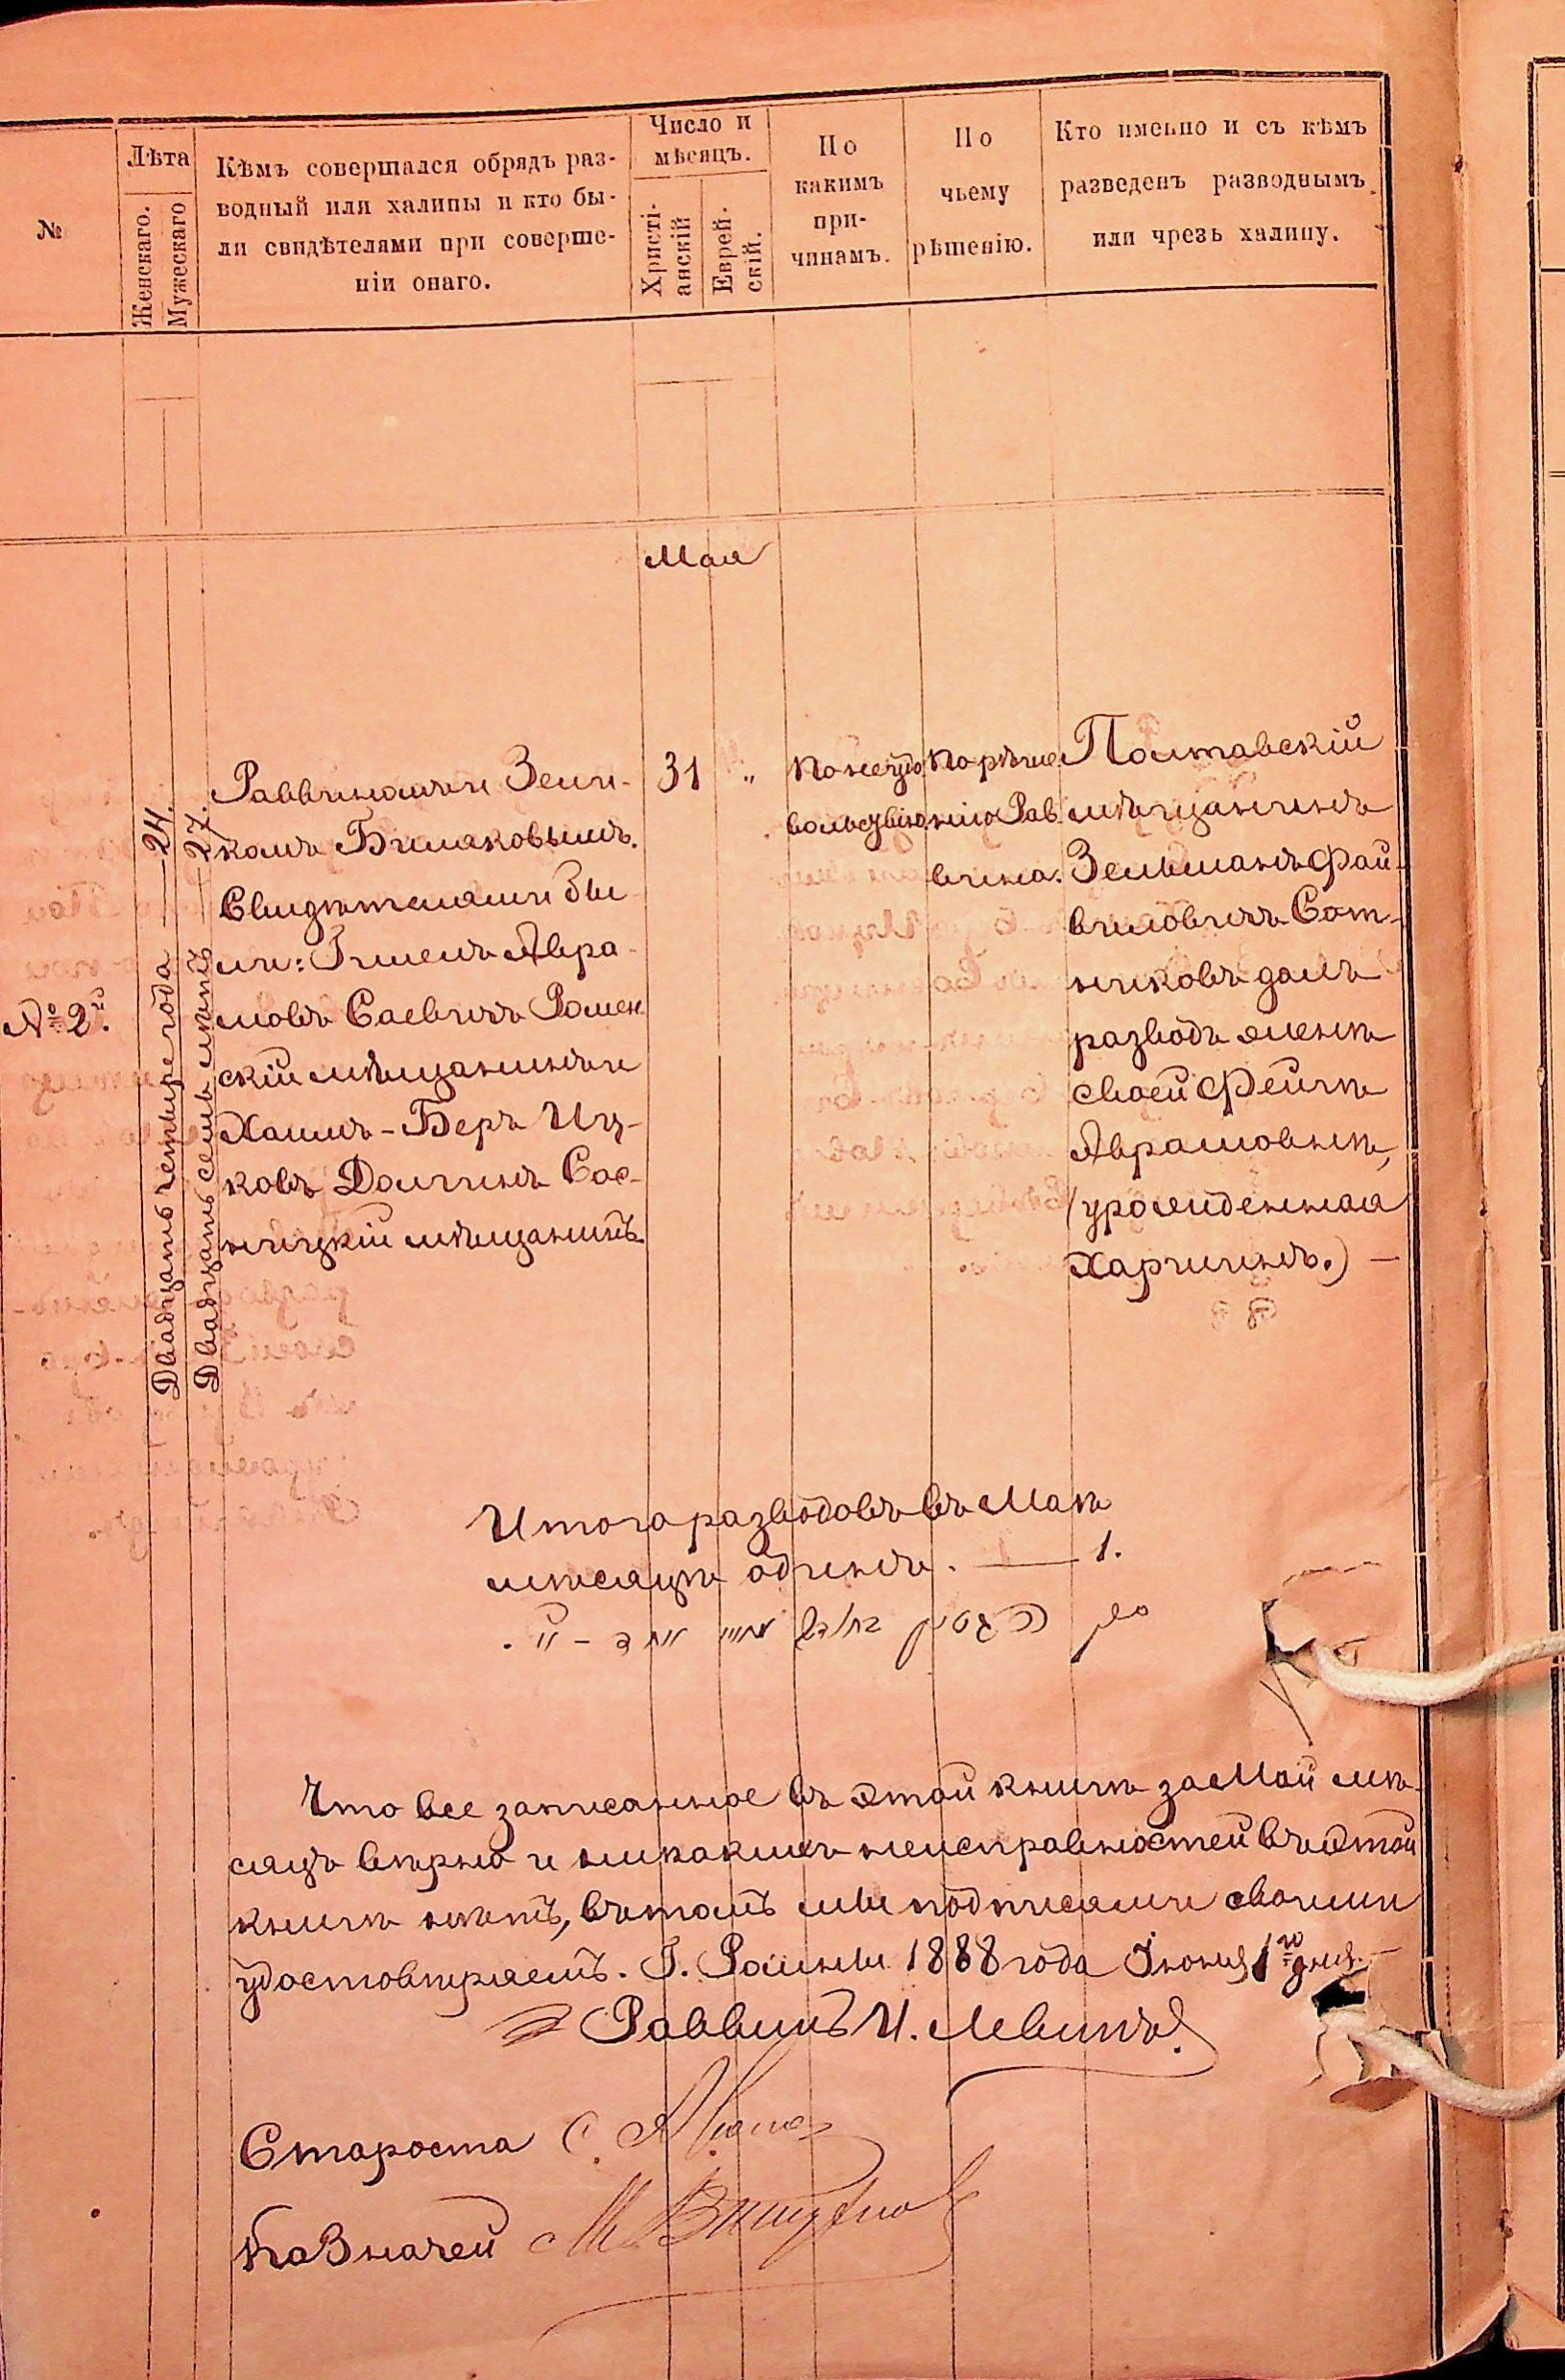 №
Лѣта
Женскаго.
Мужескаго
Кѣмъ совершался обрядъ раз-
водный или халицы и кто бы-
ли свидѣтелями при соверше-
ніи онаго.
Число и
мѣсяцъ.
Христі-
анскій
Еврей-
скій.
По
какимъ
при-
чинамъ.
По
чьему
рѣшенію.
Кто именно и съ кѣмъ
разведенъ разводнымъ
или чрезъ халицу.
Мая
№ 2й.
Двадцать четыре года — 24.
Двадцать семь лѣтъ — 27.
Раввиномъ Зели-
комъ Бимаковымъ.
Свидѣтелями бы-
ли: Гилелъ Авра-
мовъ Саевичъ Ромен
скій мѣщанинъ и
Хаимъ-Беръ Иц-
ковъ Долгинъ Сос-
ницкій мѣщанинъ.
31 "
По неудо
вольствію
По рѣше
нію Рав
вина.
Полтавскій
мѣщанинъ
Зельманъ Фай-
виловичъ Сот-
никовъ далъ
разводъ женѣ
своей Фейгѣ
Аврамовнѣ,
(урожденная
Харлинъ.) —
Итого разводовъ въ Маѣ
мѣсяцѣ одинъ. — 1.
Что все записанное въ этой книгѣ за Май мѣ-
сяцъ вѣрно и никакихъ неисправностей въ этой
книгѣ нѣтъ, въ томъ мы подписами своими
удостовѣряемъ. Г. Ромны 1888 года Іюня 1го дня.
Раввинъ И. Левинъ
Староста С.
Казначей М.